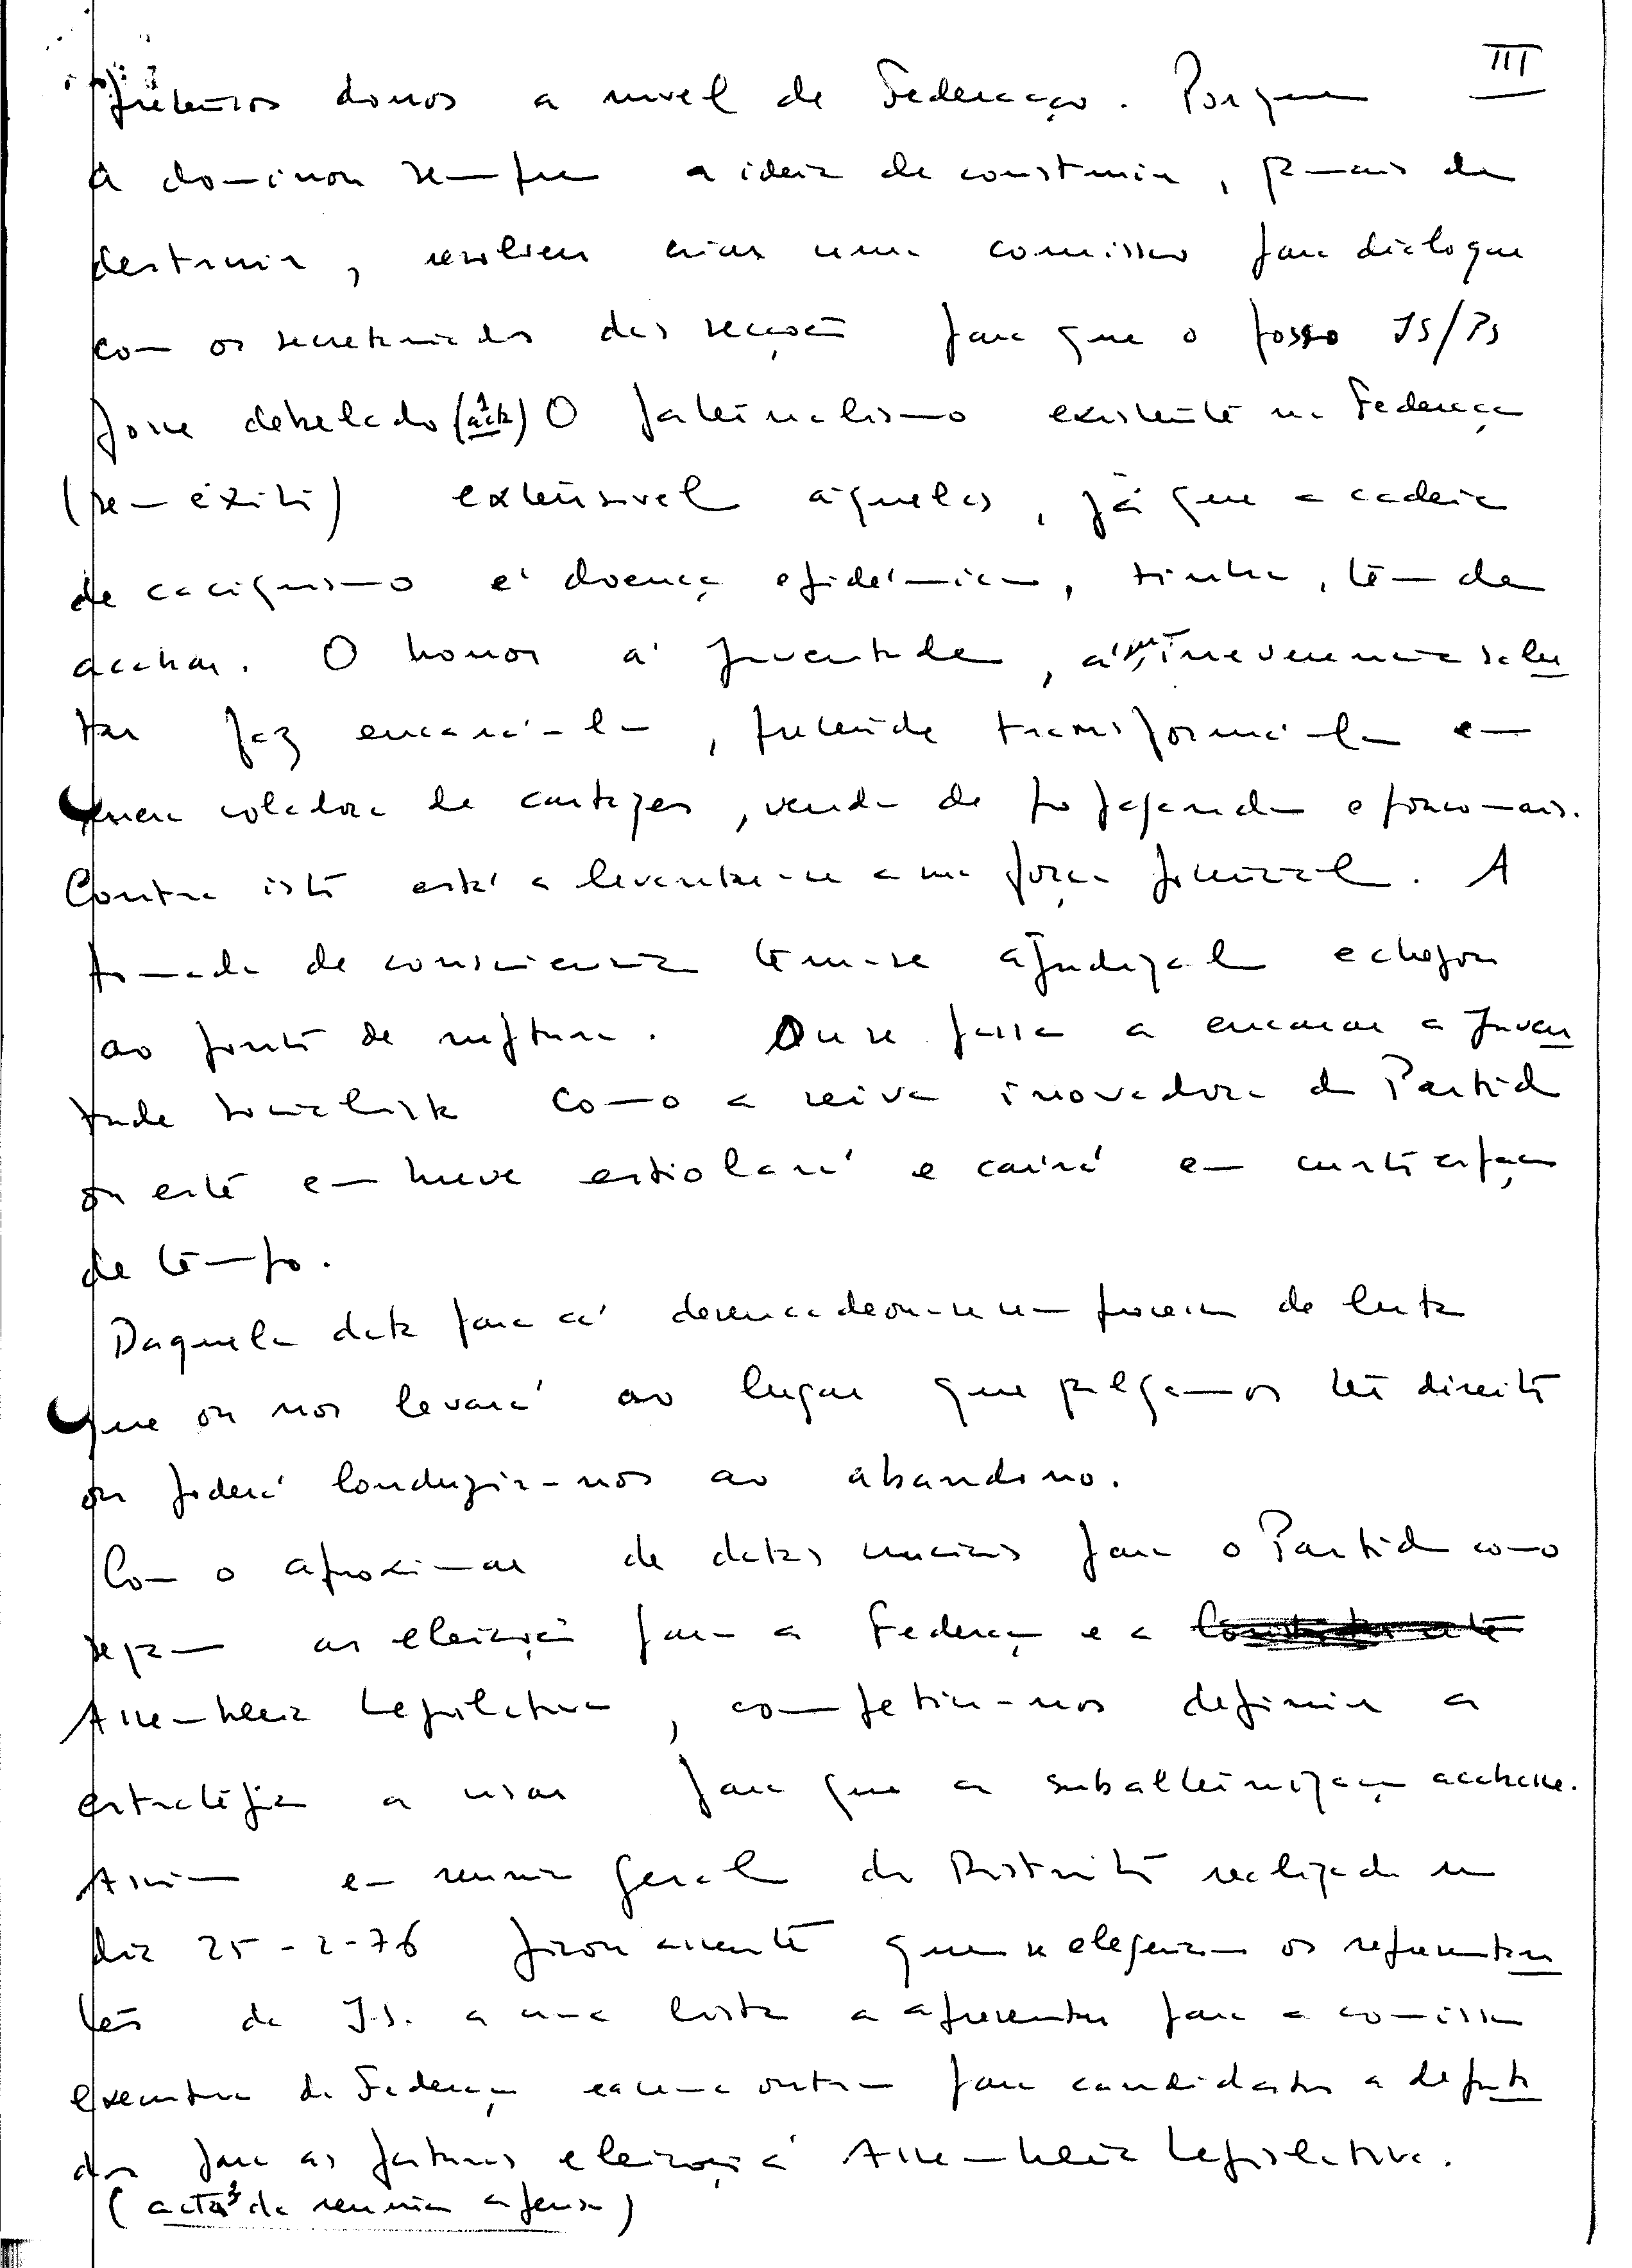 III
pretensos donos a nivel de Federação. Porque
a dominou sempre a ideia de construir, jamais de
destruir, resolveu criar uma comissão para dialogar
com os secretariados das secções para que o fosso JS/PS
fosse debelado (acta 1) O paternalismo existente na Federação
(sem êxito) extensivel àquelas, já que a cadeia
de caciquismo é doença epidémica, tinha, tem de
acabar. O horror à juventude, à irreverencia salu
tar faz encará-la, pretende transformá-la em
mera coladora de cartazes, venda de propaganda e pouco mais.
Contra isto está a levantar-se a força juvenil. A
tomada de consciencia tem-se ajudizado e chegou
ao ponto de ruptura. Ou se passa a encarar a Juven
tude Socialista como a seiva inovadora do Partido
ou este em breve estiolará e cairá em curto espaço
de tempo.
Daquela data para cá desencadeou-se um processo de luta
que ou nos levará ao lugar que julgamos ter direito
ou poderá conduzir-nos ao abandono.
Com o aproximar de datas cruciais para o Partido como
sejam as eleições para a Federação e a
Assembleia Legislativa, competiu-nos definir a
estratégia a usar para que a subalternização acabasse.
Assim em reunião geral do Distrito realizada no
dia 25-2-76 ficou assente que se elegeriam os representan
tes da J.S. a uma lista a apresentar para a comissão
executiva da Federação e uma outra para candidatos a deputa
dos para as futuras eleições à Assembleia Legislativa.
(acta 3 da reunião apensa)